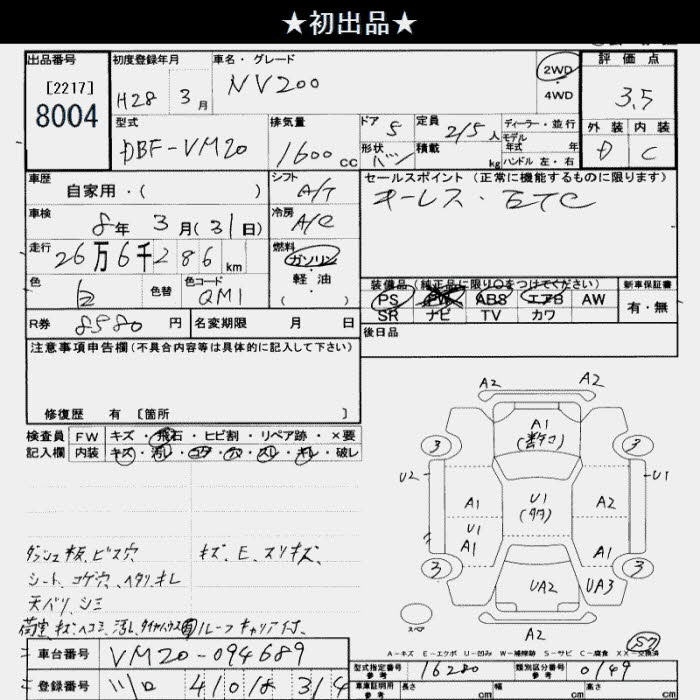 ★初出品★
出品番号 初度登録年月 車名・グレード 評価点
[2217]
8004
H28 3月 NV200
2WD
4WD
3.5
型式 排気量 ドア 定員 ディーラー・並行
DBF-VM20 1600cc 5 2/5人 モデル年式 年
形状 バン 積載 kg ハンドル 左・右
外装 内装
D C
車歴 シフト セールスポイント (正常に機能するものに限ります)
自家用・( ) A/T キーレス・ETC
車検 冷房
8年 3月(31日) A/C
走行 燃料
26万6千286km ガソリン
軽油
( )
色 色替 色コード
白 QM1
装備品 (純正品に限り〇をつけてください) 新車保証書
PS PW ABS エアB AW 有・無
SR ナビ TV カワ
R券 8580円 名変期限 月 日
後日品
注意事項申告欄(不具合内容等は具体的に記入して下さい)
修復歴 有 [箇所 ]
検査員 FW キズ・飛石・ヒビ割・リペア跡・×要
記入欄 内装 キズ・汚レ・コゲ・穴・スレ・キレ・破レ
A2 A2
A1
3 3
U2 U1
A1 U1 A2
U1
A1 A1
3 3
UA2 UA3
スペア
A2
ダッシュ板、ビス穴 キズ、E、スリキズ、
シート、コゲ穴、ヘタリ、キレ
天バリ、シミ
荷室 キズ、ヘコミ、汚レ、タイヤハウス ルーフキャリア付、
A-キズ E-エクボ U-凹み W-補修跡 S-サビ C-腐食 XX-交換済
車台番号 VM20-094689
型式指定番号 参考 16280 類別区分番号 参考 0149
登録番号
車庫証明用 参考 長さ cm 幅 cm 高さ cm